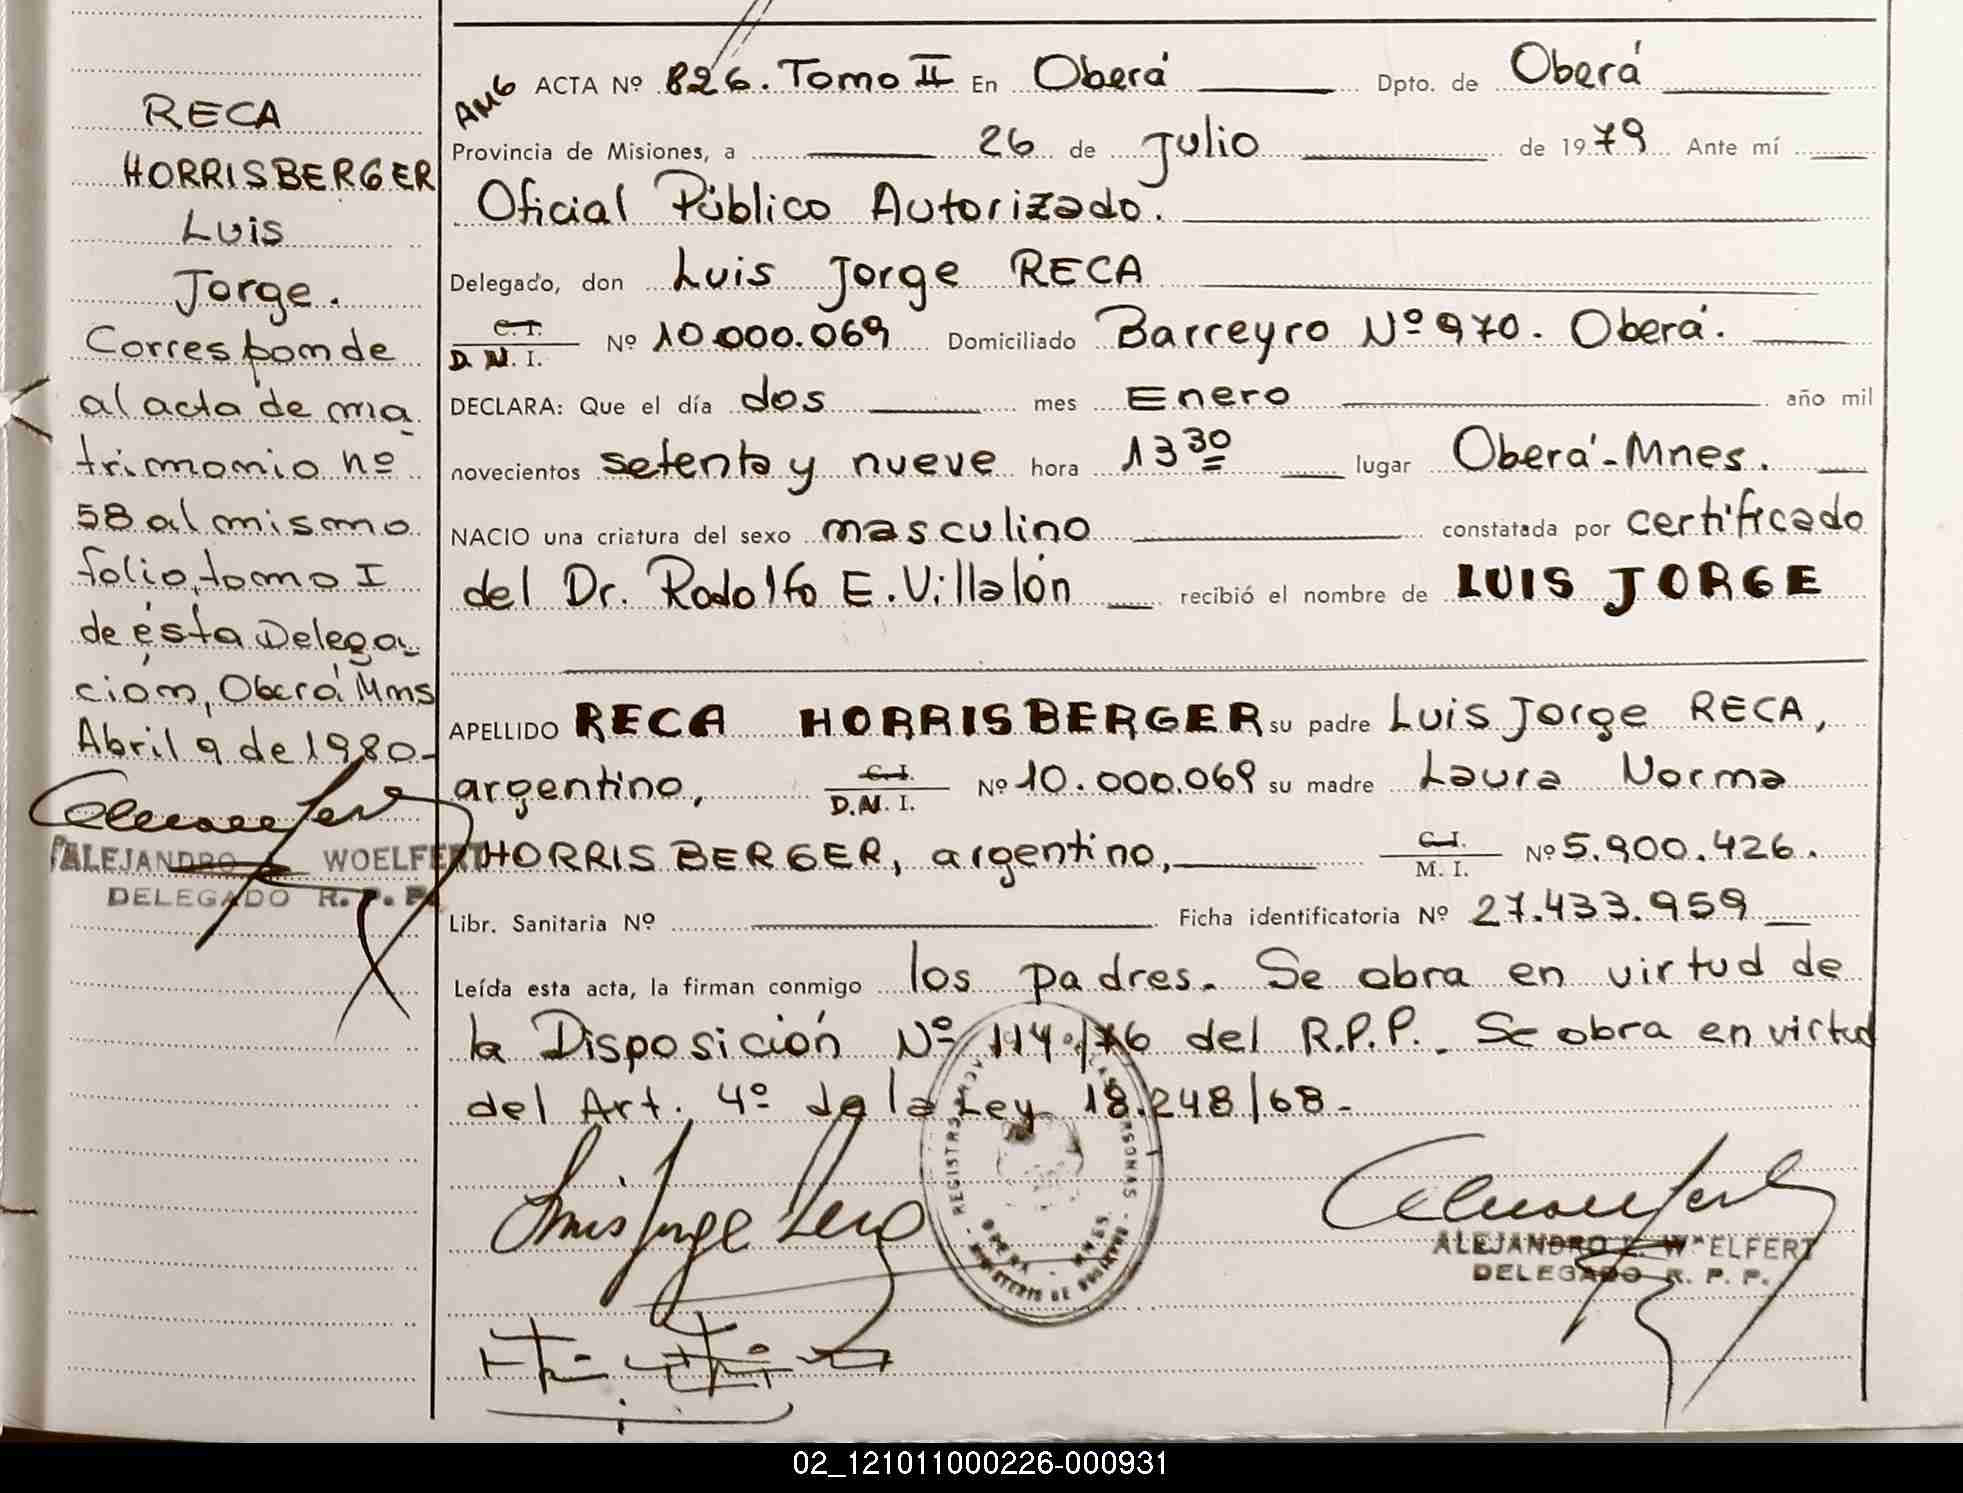 RECA
HORRISBERGER
Luis
Jorge.
Corresponde
al acta de ma
trimonio nº
58 al mismo
folio, tomo I
de ésta Delega
ción, Oberá Mnes
Abril 9 de 1980-
ALEJANDRO WOELFERT
DELEGADO R. P. P.
ACTA Nº 826. Tomo II En Oberá Dpto. de Oberá
Provincia de Misiones, a 26 de Julio de 1979 Ante mí
Oficial Público Autorizado.
Delegado, don Luis Jorge RECA
C. I.
D. N. I. Nº 10.000.069 Domiciliado Barreyro Nº 970. Oberá.
DECLARA: Que el día dos mes Enero año mil
novecientos setenta y nueve hora 13 30 lugar Oberá-Mnes.
NACIO una criatura del sexo masculino constatada por certificado
del Dr. Rodolfo E. Villalón recibió el nombre de LUIS JORGE
APELLIDO RECA HORRISBERGER su padre Luis Jorge RECA,
argentino, C. I. D.N. I. Nº 10.000.069 su madre Laura Norma
HORRISBERGER, argentino, C. I. M. I. Nº 5.900.426.
Libr. Sanitaria Nº Ficha identificatoria Nº 27.433.959
Leída esta acta, la firman conmigo los padres. Se obra en virtud de
la Disposición Nº 114/76 del R.P.P. Se obra en virtud
del Art. 4º de la Ley 18.248/68-
Luis Jorge Reca
ALEJANDRO L. WOELFERT
DELEGADO R. P. P.
02_121011000226-000931